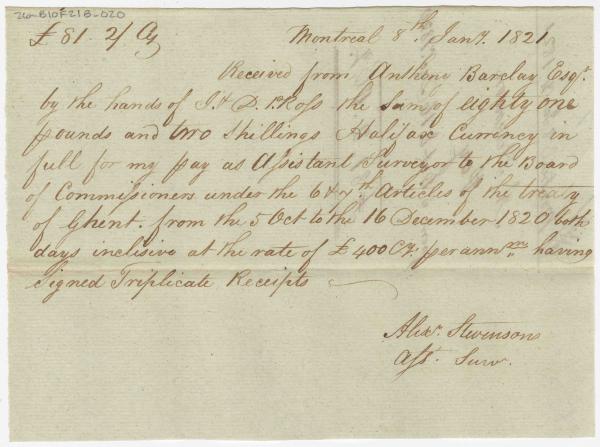 26-B10F21B-020
£81. 2/ Cy Montreal 8th Jany. 1821
Received from Anthony Barclay Esqr.
by the hands of J. & D. McRoss the sum of eighty one
pounds and two Shillings Halifax Currency in
full for my pay as Assistant Surveyor to the Board
of Commissioners under the 6 & 7th Articles of the treaty
of Ghent. from the 5 Oct to the 16 December 1820 both
days inclusive at the rate of £400 Cy. per ann having
signed Triplicate Receipts
Alexr. Stevenson
Asst. Surv.